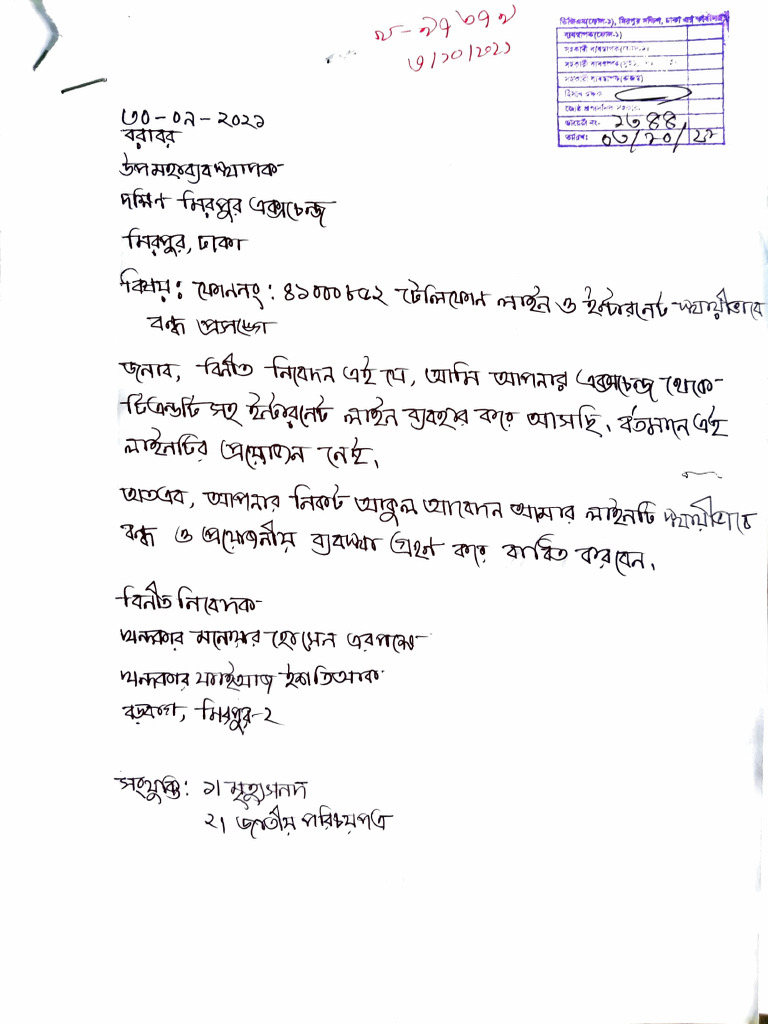 ৩/১০/২০২১
ডিজিএম(ফোন্স-১), মিরপুর দক্ষিণ, ঢাকা এর কার্যালয়
ব্যবস্থাপক(ফোন্স-১)
সহকারী ব্যবস্থাপক
সহকারী ব্যবস্থাপক
সহকারী ব্যবস্থাপক
হিসাব রক্ষক
ডায়েরী নং- ১৬৪৪
তারিখঃ ০৩/১০/২১
৩০-০৯-২০২১
বরাবর
উপমহাব্যবস্থাপক
দক্ষিণ মিরপুর এক্সচেন্জ
মিরপুর, ঢাকা
বিষয়ঃ ফোননং: ৪১০০০৮৫২ টেলিফোন লাইন ও ইন্টারনেট স্থায়ীভাবে
বন্ধ প্রসঙ্গে
জনাব, বিনীত নিবেদন এই যে, আমি আপনার এক্সচেন্জ থেকে
টিএন্ডটি সহ ইন্টারনেট লাইন ব্যবহার করে আসছি। বর্তমানে এই
লাইনটির প্রয়োজন নেই।
অতএব, আপনার নিকট আকুল আবেদন আমার লাইনটি স্থায়ীভাবে
বন্ধ ও প্রয়োজনীয় ব্যবস্থা গ্রহণ করে বাধিত করবেন।
বিনীত নিবেদক
খন্দকার মনোয়ার হোসেন এরপক্ষে
খন্দকার ফাইআজ ইশতিআক
বড়বাগ, মিরপুর-২
সংযুক্তি: ১। মৃত্যুসনদ
২। জাতীয় পরিচয়পত্র